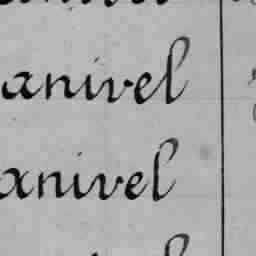 anivel
anivel